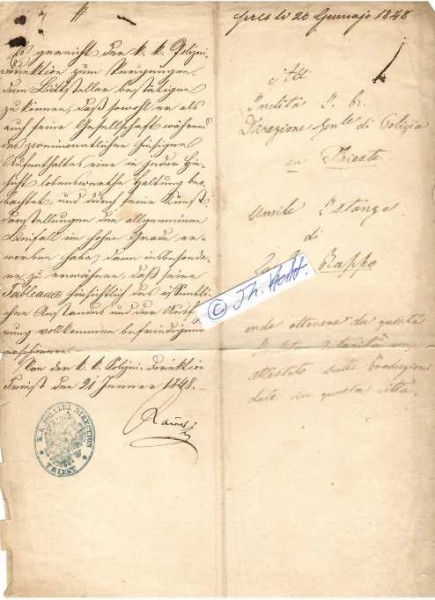 Es gereicht der k. k. Polizei-
direktion zum Vergnügen,
dem Bittsteller bestätigen
zu können, daß sowohl er als
auch seine Gesellschaft während
des hiesigen
Aufenthaltes eine in jeder Hin-
sicht lobenswerthe Haltung beo-
bachtet, und durch seine Kunst-
Vorstellungen den allgemeinen
Beifall im hohen Grade er-
worben habe, dann insbesonde-
re zu erwähnen, daß seine
Tableaux hinsichtlich des öffentli-
chen Anstandes und der
vollkommen befriedigend
Von der k. k. Polizei-direktion
Triest den 21 Jänner 1848.
K. K. POLIZEI DIRECTION
TRIEST
pres li 20 Gennajo 1848
All
Inclita I. R.
Direzione gnle di Polizia
in Trieste
Umile Istanza
di
Rappo
© Th. Acht.
onde ottenere da questa
attestato sulle produzioni
date in questa città.